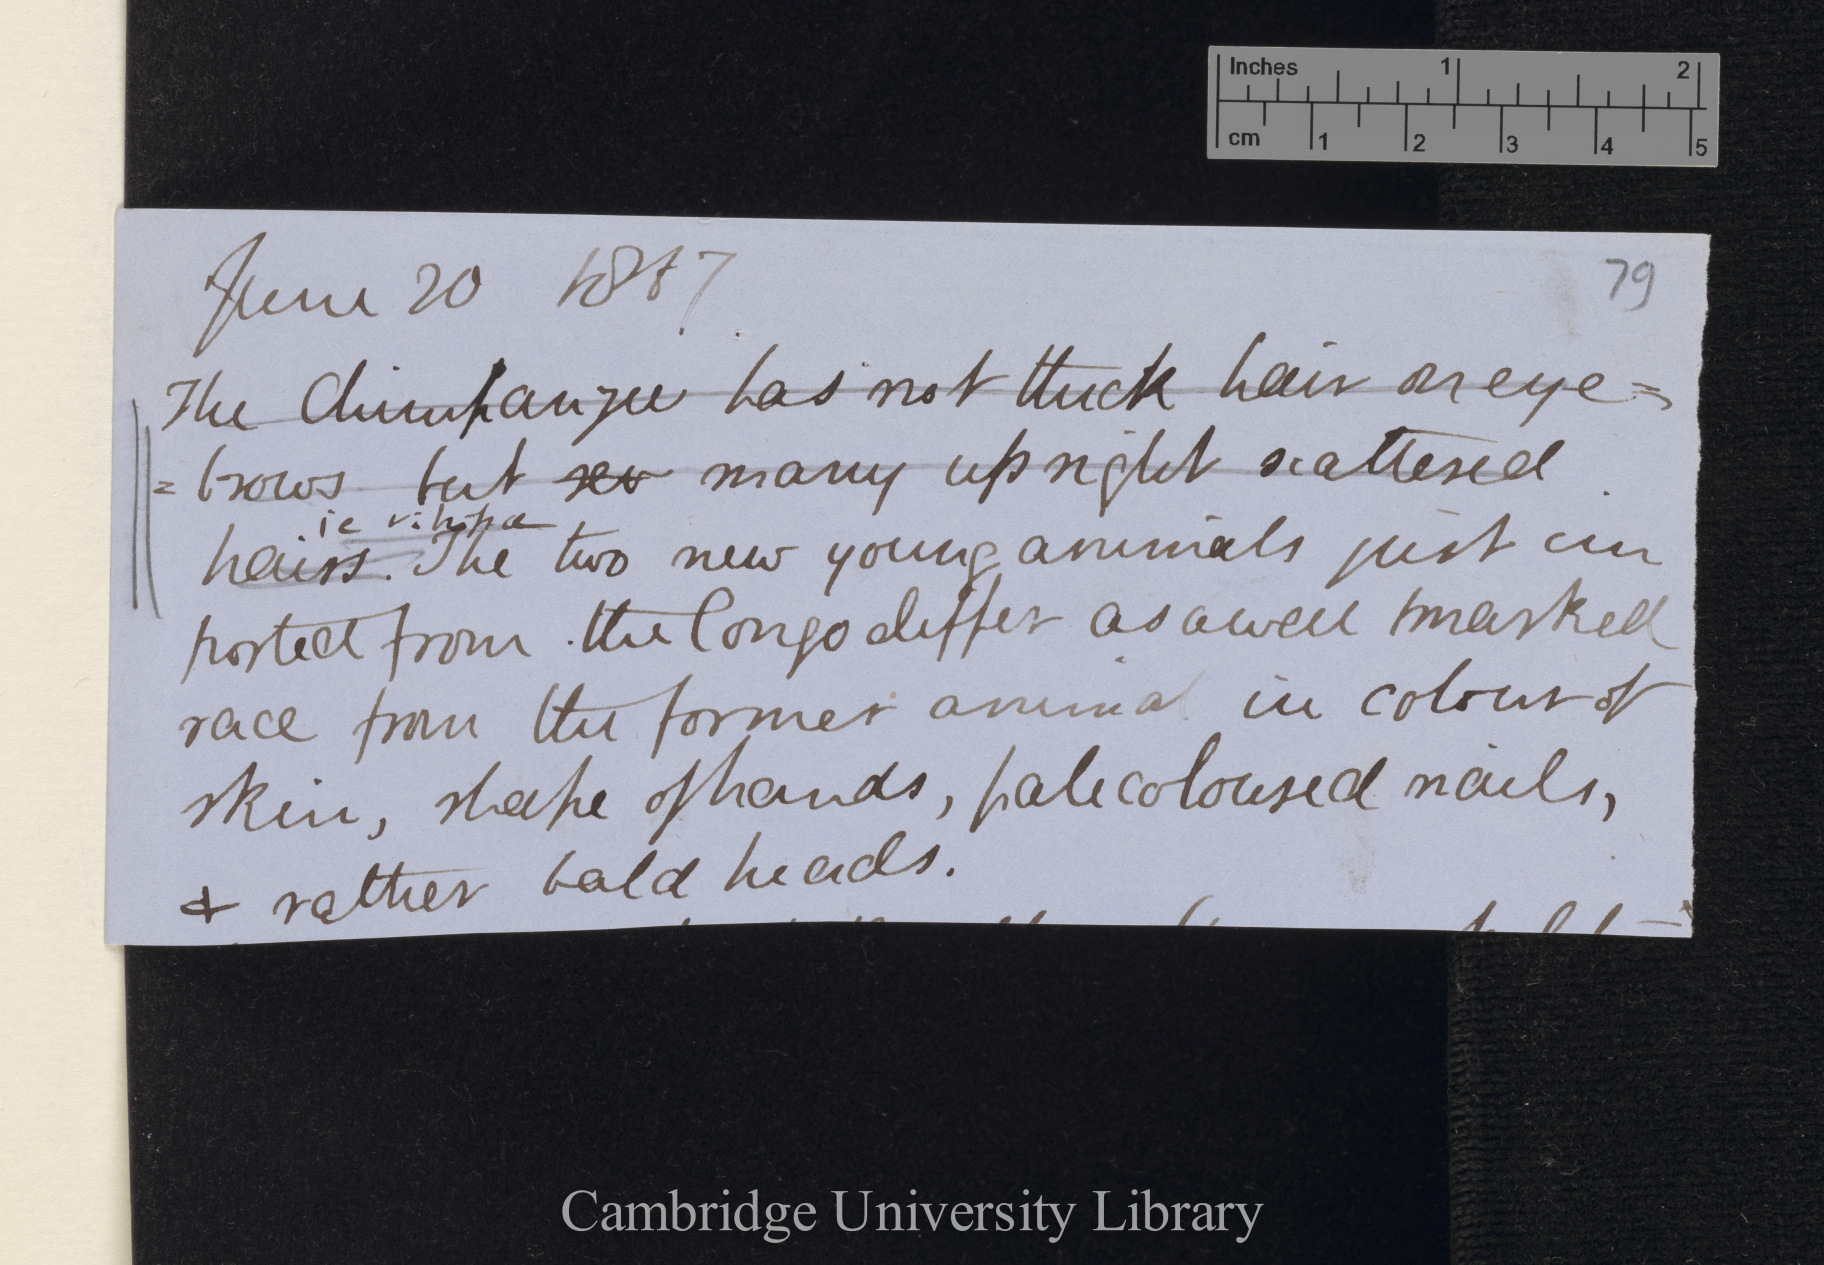 Inches 1 2
cm 1 2 3 4 5
June 20 1867
79
The Chimpanzee has not thick hair on eye=
=brows but many upright scattered
ie vibissae
hairs. The two new young animals just im
ported from the Congo differ as a well marked
race from the former animal in colour of
skin, shape of hands, pale coloured nails,
& rather bald heads.
Cambridge University Library